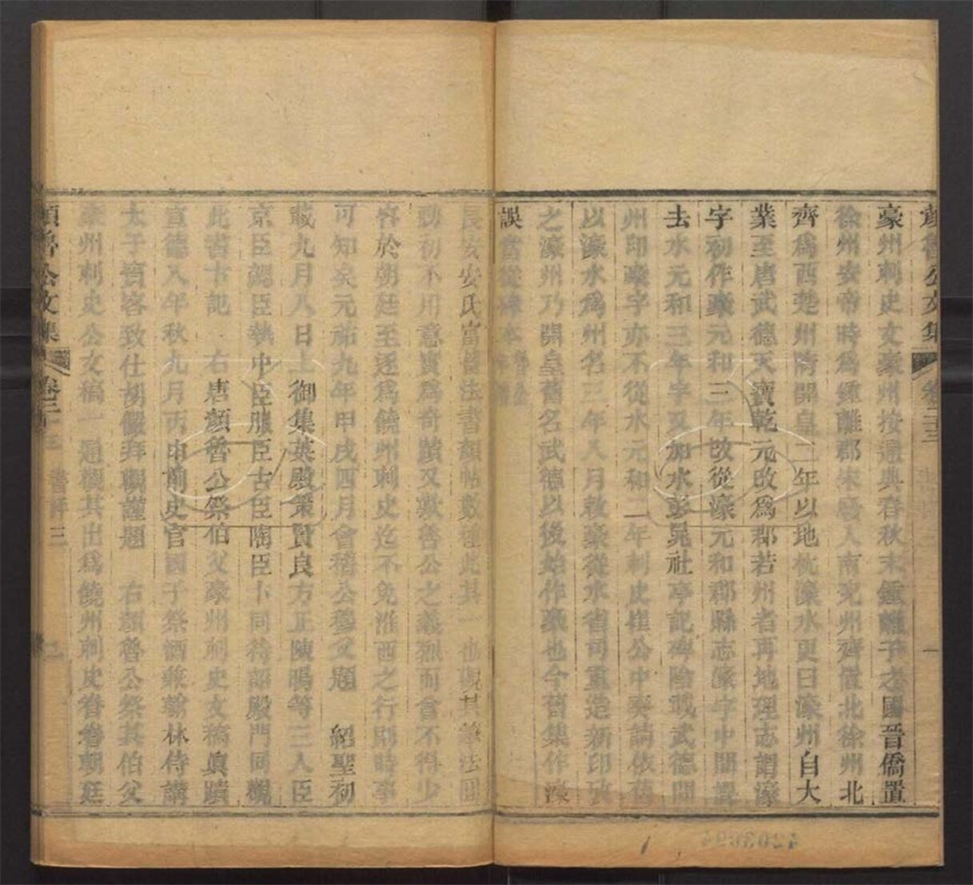 顏魯公文集 卷二十三
豪州刺史文豪州按通典春秋末鍾離子之國晉僑置
徐州安帝時為鍾離郡宋為入南兗州齊僑北徐州北
齊爲西楚州隋開皇二年以地枕濠水更曰濠州自大
業至唐武德天寶乾元改爲郡若州者再地理志謂濠
字初作豪元和三年改從濠元和郡縣志濠字中間誤
去水元和三年字又加水彭晁社亭記碑陰載武德間
州印豪字亦不從水元和二年刺史崔公中奏請依舊
以濠水爲州名三年八月敕豪從水省司重造新印攷
之濠州乃開皇舊名武德以後始作豪也今舊集作濠
誤當從碑本
長安安氏富藏法書顏帖數種此其一也
動初不用意實爲奇蹟又歎魯公之義烈而會不得少
容於朝廷至逐爲饒州刺史迄不免淮西之行則時事
可知矣元祐九年甲戌四月會稽公蘊父題 紹聖初
載九月八日上御集英殿策賢良方正陳暘等三人臣
京臣勰臣執中臣服臣古臣陶臣卞同待詔殿門同觀
此書卞記 右唐顏魯公祭伯父豪州刺史文稿眞蹟
宣德八年秋九月丙申前史官國子祭酒兼翰林侍講
太子賓客致仕胡儼拜觀謹題 右顏魯公祭其伯父
豪州刺史公文稿一 題觀其出爲饒州刺史眷眷朝廷
顏魯公文集 卷二十三 書評三